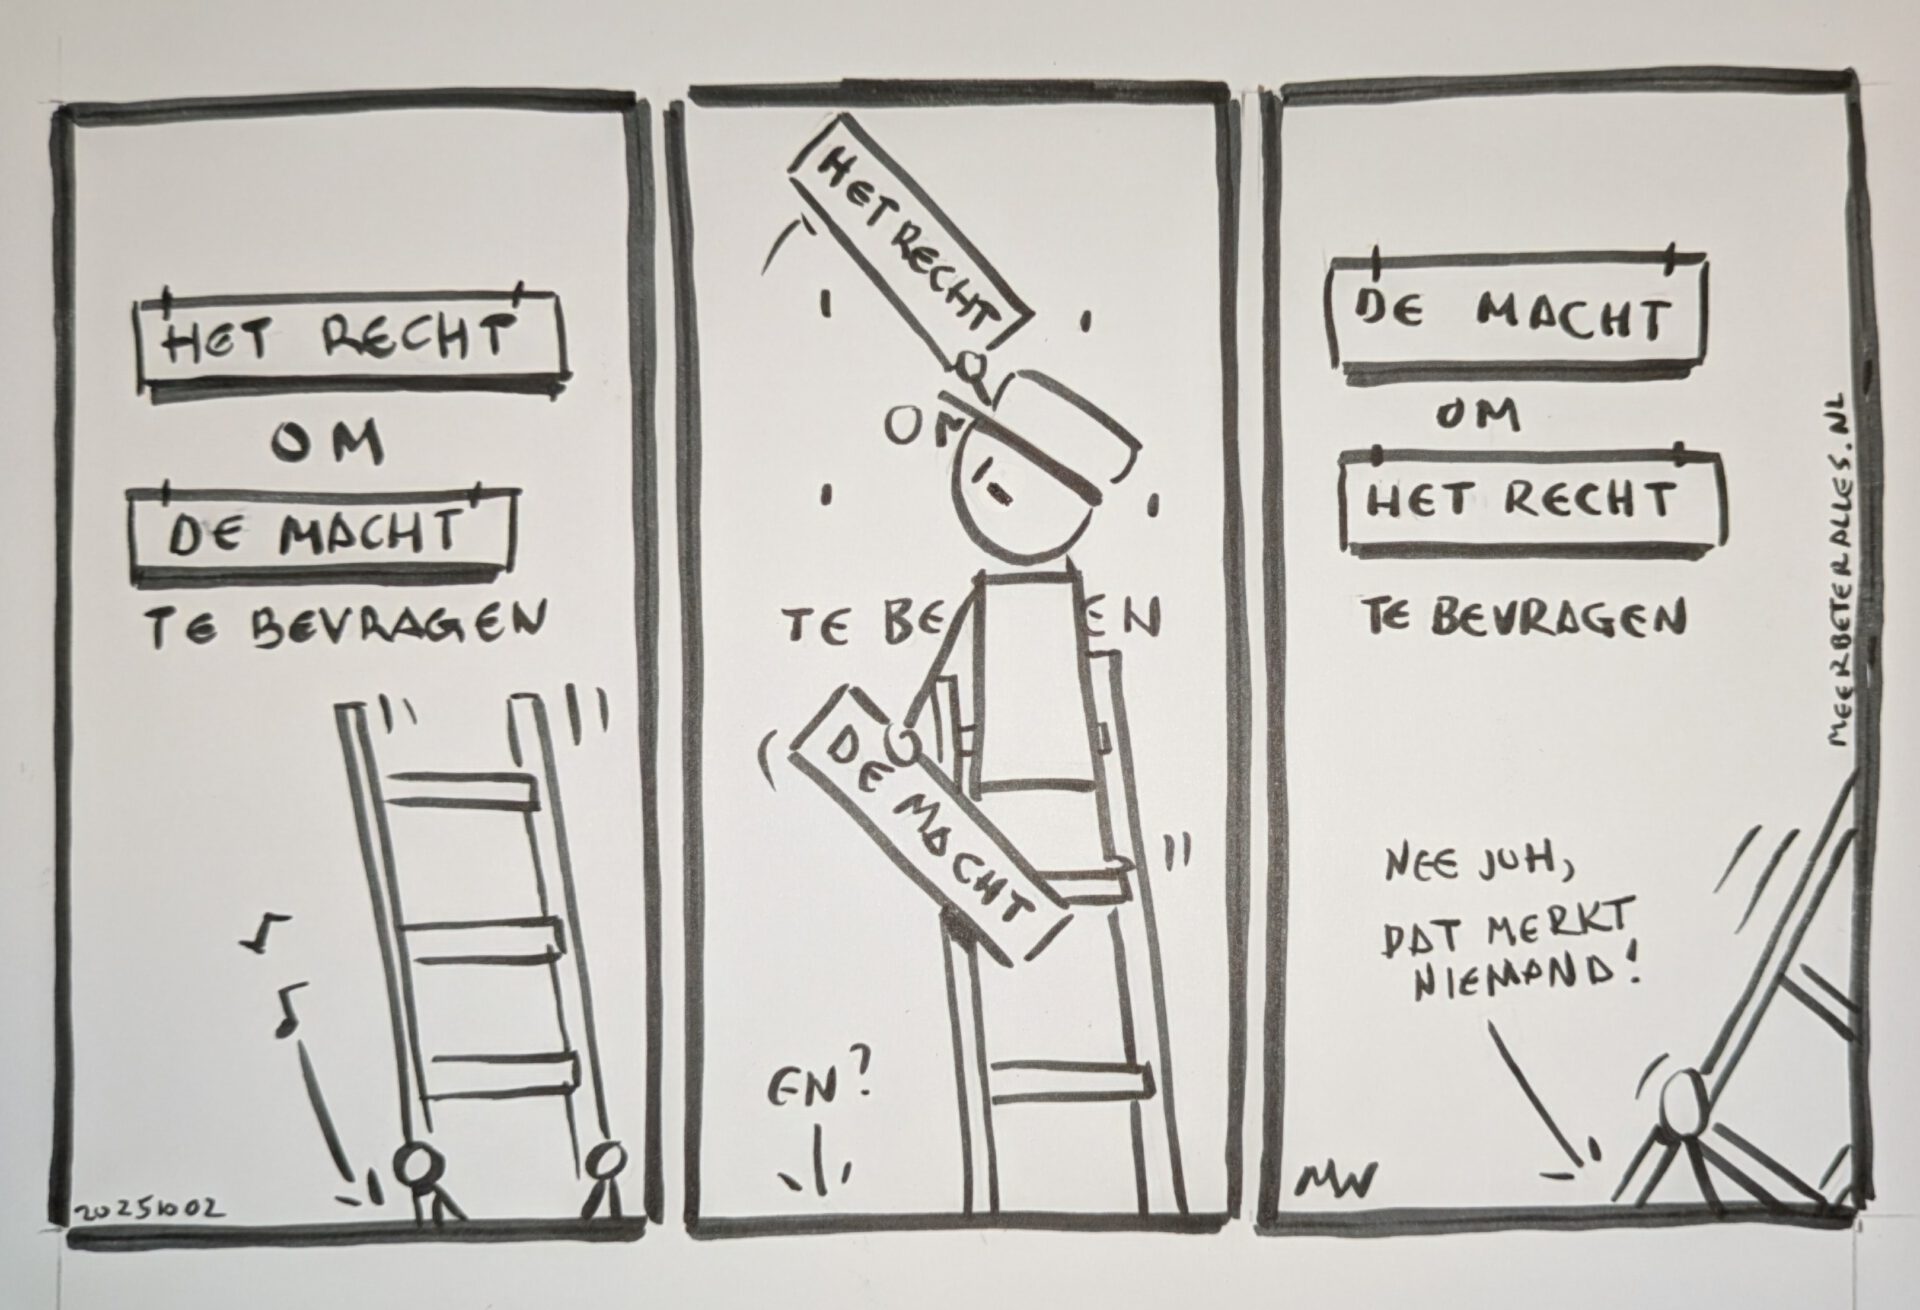 HET RECHT
OM
DE MACHT
TE BEVRAGEN
20251002
HET RECHT
OM
TE BE EN
DE MACHT
EN?
DE MACHT
OM
HET RECHT
TE BEVRAGEN
NEE JOH,
DAT MERKT
NIEMAND!
MW
MEERBETERALLES.NL